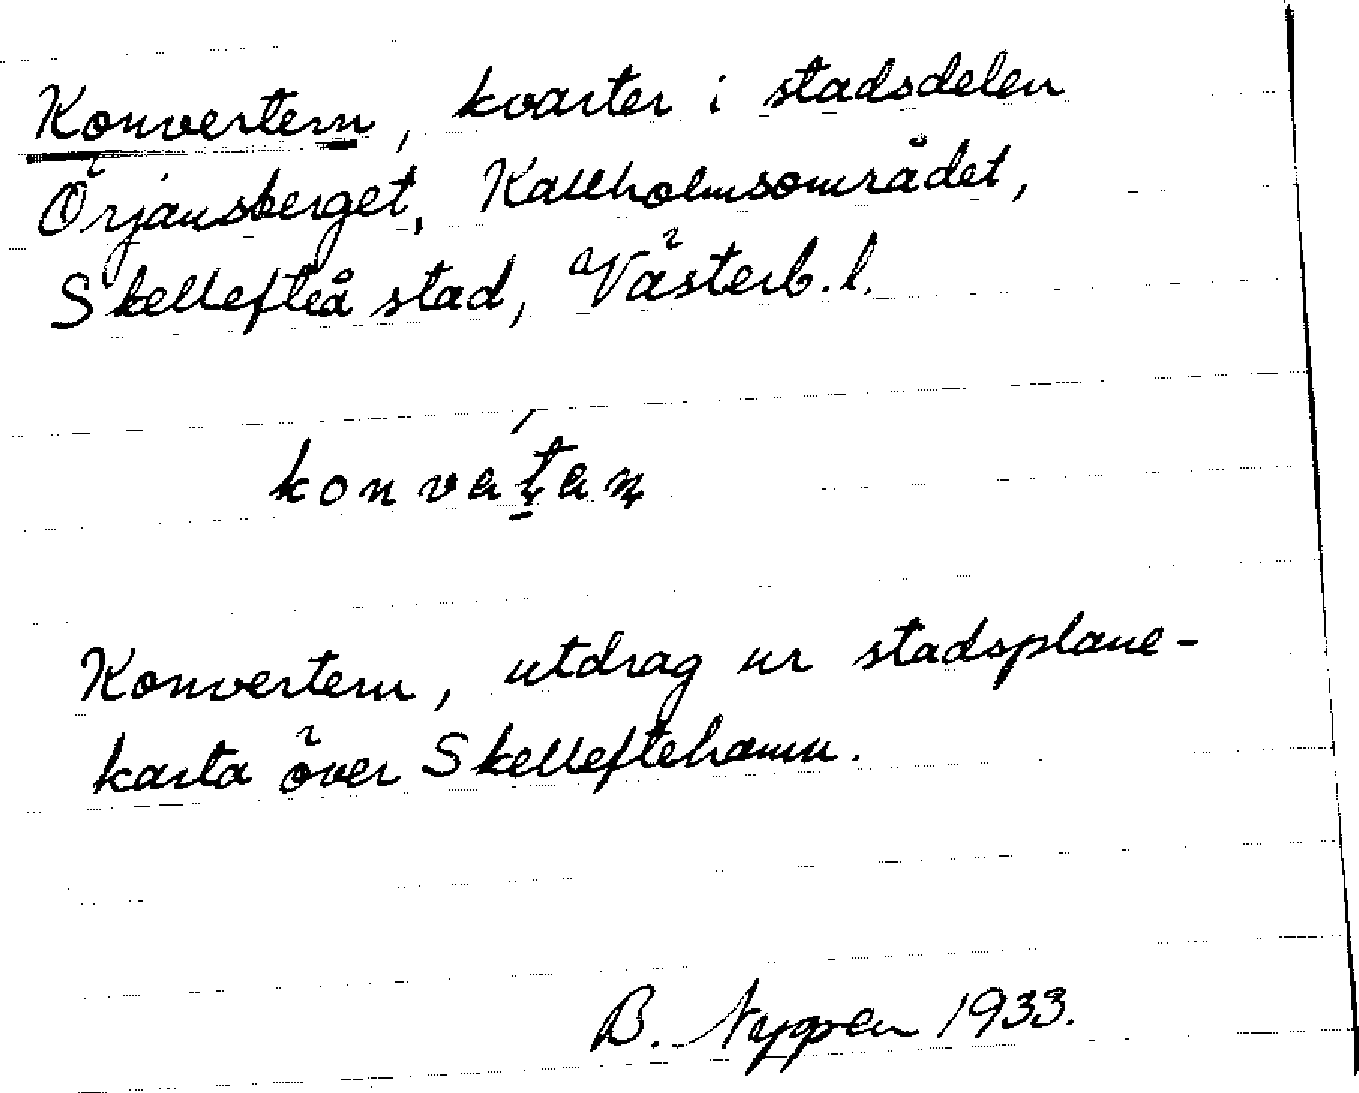 Konvertern, kvarter i stadsdelen
Örjansberget, Kallholmsområdet,
Skellefteå stad, Västerb. l.
Konvertern, utdrag ur stadsplane-
karta över Skelleftehamn.
B. Nygren 1933.